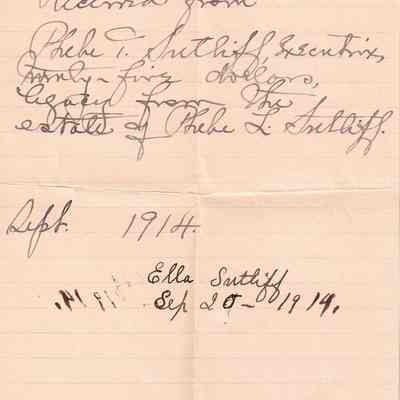 Received from
Phebe T. Sutliff, Executrix,
twenty-five dollars,
legacy from the
estate of Phebe L. Sutliff.
Sept. 1914.
Ella Sutliff
Sep 20 - 1914.